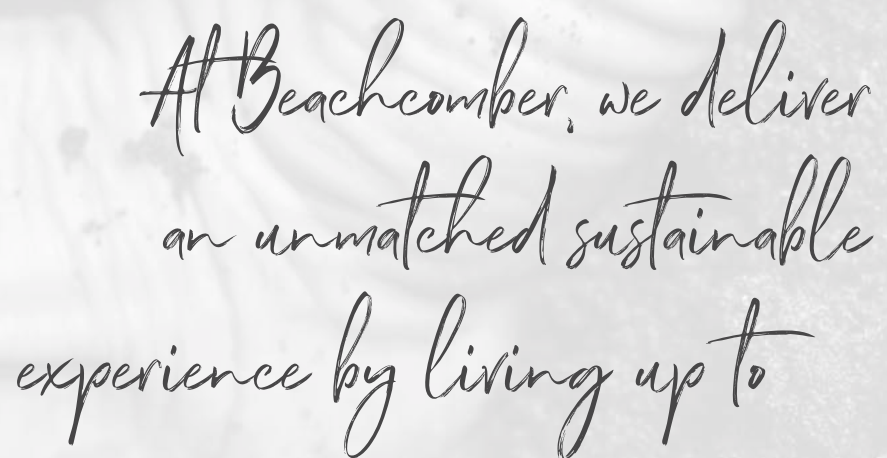 At Beachcomber, we deliver
an unmatched sustainable
experience by living up to